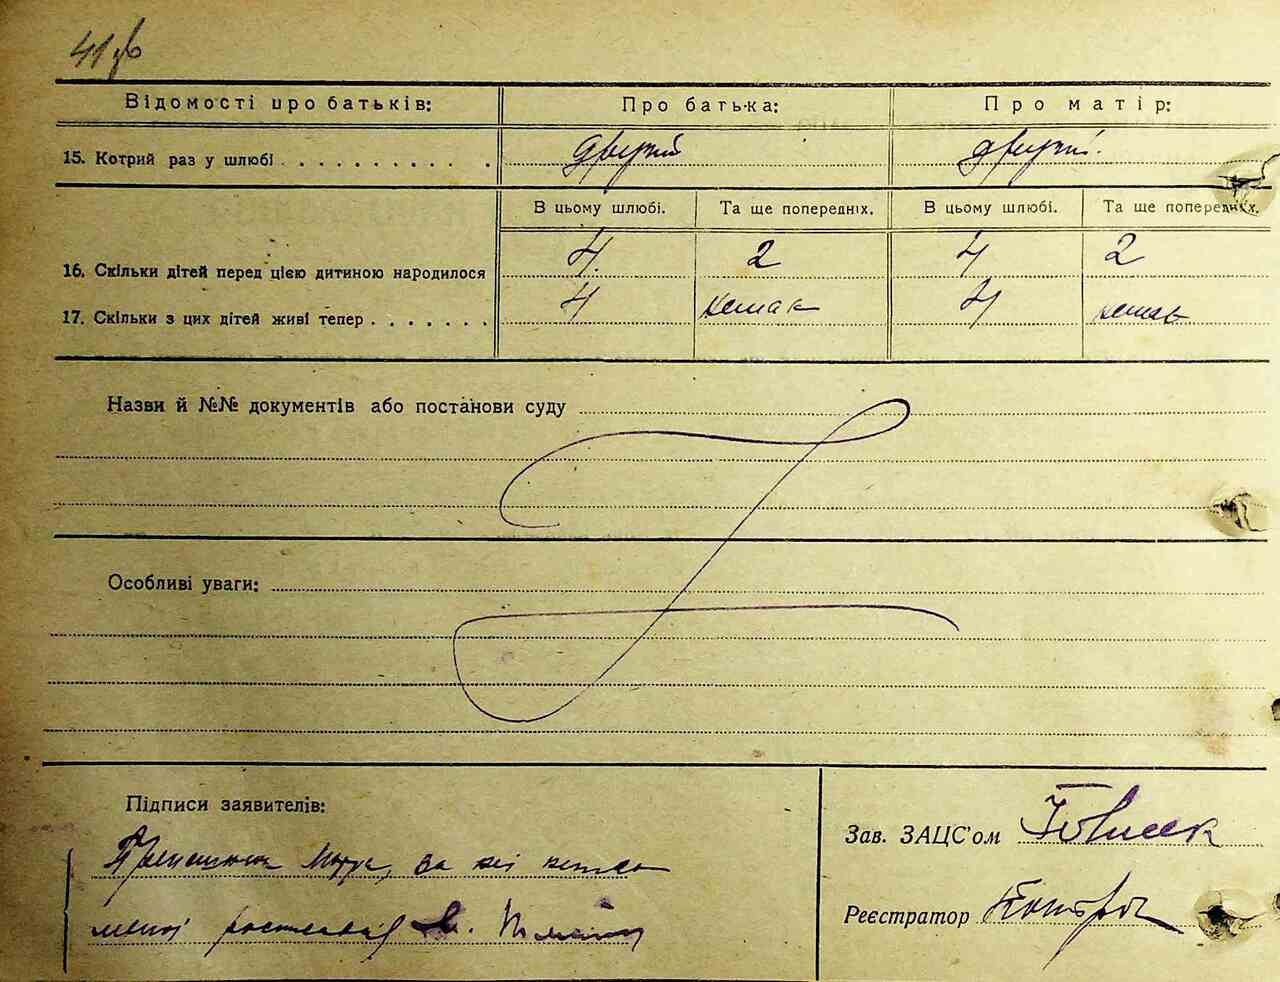 41
Відомості про батьків: Про батька: Про матір:
15. Котрий раз у шлюбі . . . . . . . . . . другий другий.
В цьому шлюбі. Та ще попередніх. В цьому шлюбі. Та ще попередніх.
16. Скільки дітей перед цією дитиною народилося 4 2 4 2
17. Скільки з цих дітей живі тепер . . . . . . . 4 немає 4 немає
Назви й №№ документів або постанови суду
Особливі уваги:
Підписи заявителів:
за неї
Зав. ЗАЦС'ом
Реєстратор